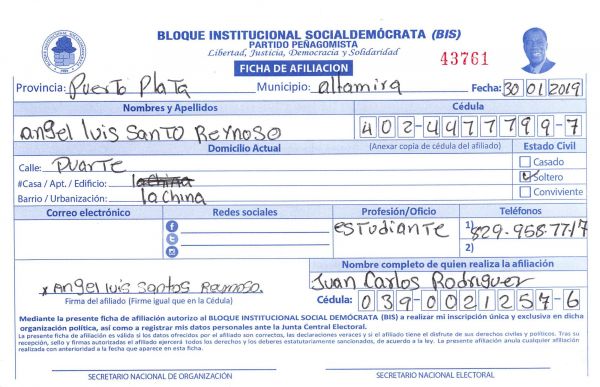 BLOQUE INSTITUCIONAL SOCIALDEMÓCRATA (BIS)
PARTIDO PEÑAGOMISTA
Libertad, Justicia, Democracia y Solidaridad
FICHA DE AFILIACION
43761
Provincia: Puerto Plata Municipio: altamira Fecha: 30 01 2019
Nombres y Apellidos Cédula
angel luis Santo Reynoso 402-4477799-7
Domicilio Actual (Anexar copia de cédula del afiliado) Estado Civil
Calle: Duarte Casado
#Casa / Apt. / Edificio: la china Soltero
Barrio / Urbanización: la china Conviviente
Correo electrónico Redes sociales Profesión/Oficio Teléfonos
estudiante 1) 829-958-7717
2)
Nombre completo de quien realiza la afiliación
x Angel luis Santos Reynoso. Juan Carlos Rodriguez
Firma del afiliado (Firme igual que en la Cédula) Cédula: 039-0021257-6
Mediante la presente ficha de afiliación autorizo al BLOQUE INSTITUCIONAL SOCIAL DEMÓCRATA (BIS) a realizar mi inscripción única y exclusiva en dicha
organización política, así como a registrar mis datos personales ante la Junta Central Electoral.
La presente ficha de afiliación es válida si los datos ofrecidos por el afiliado son correctos, las declaraciones veraces y si el afiliado tiene el disfrute de sus derechos civiles y políticos. Tras su
recepción, sello y firmas autorizadas el afiliado ejercerá todos los derechos y los deberes estatutariamente sancionados, de acuerdo a la ley. La presente afiliación anula cualquier afiliación
realizada con anterioridad a la fecha que aparece en esta ficha.
SECRETARIO NACIONAL DE ORGANIZACIÓN SECRETARIO NACIONAL ELECTORAL